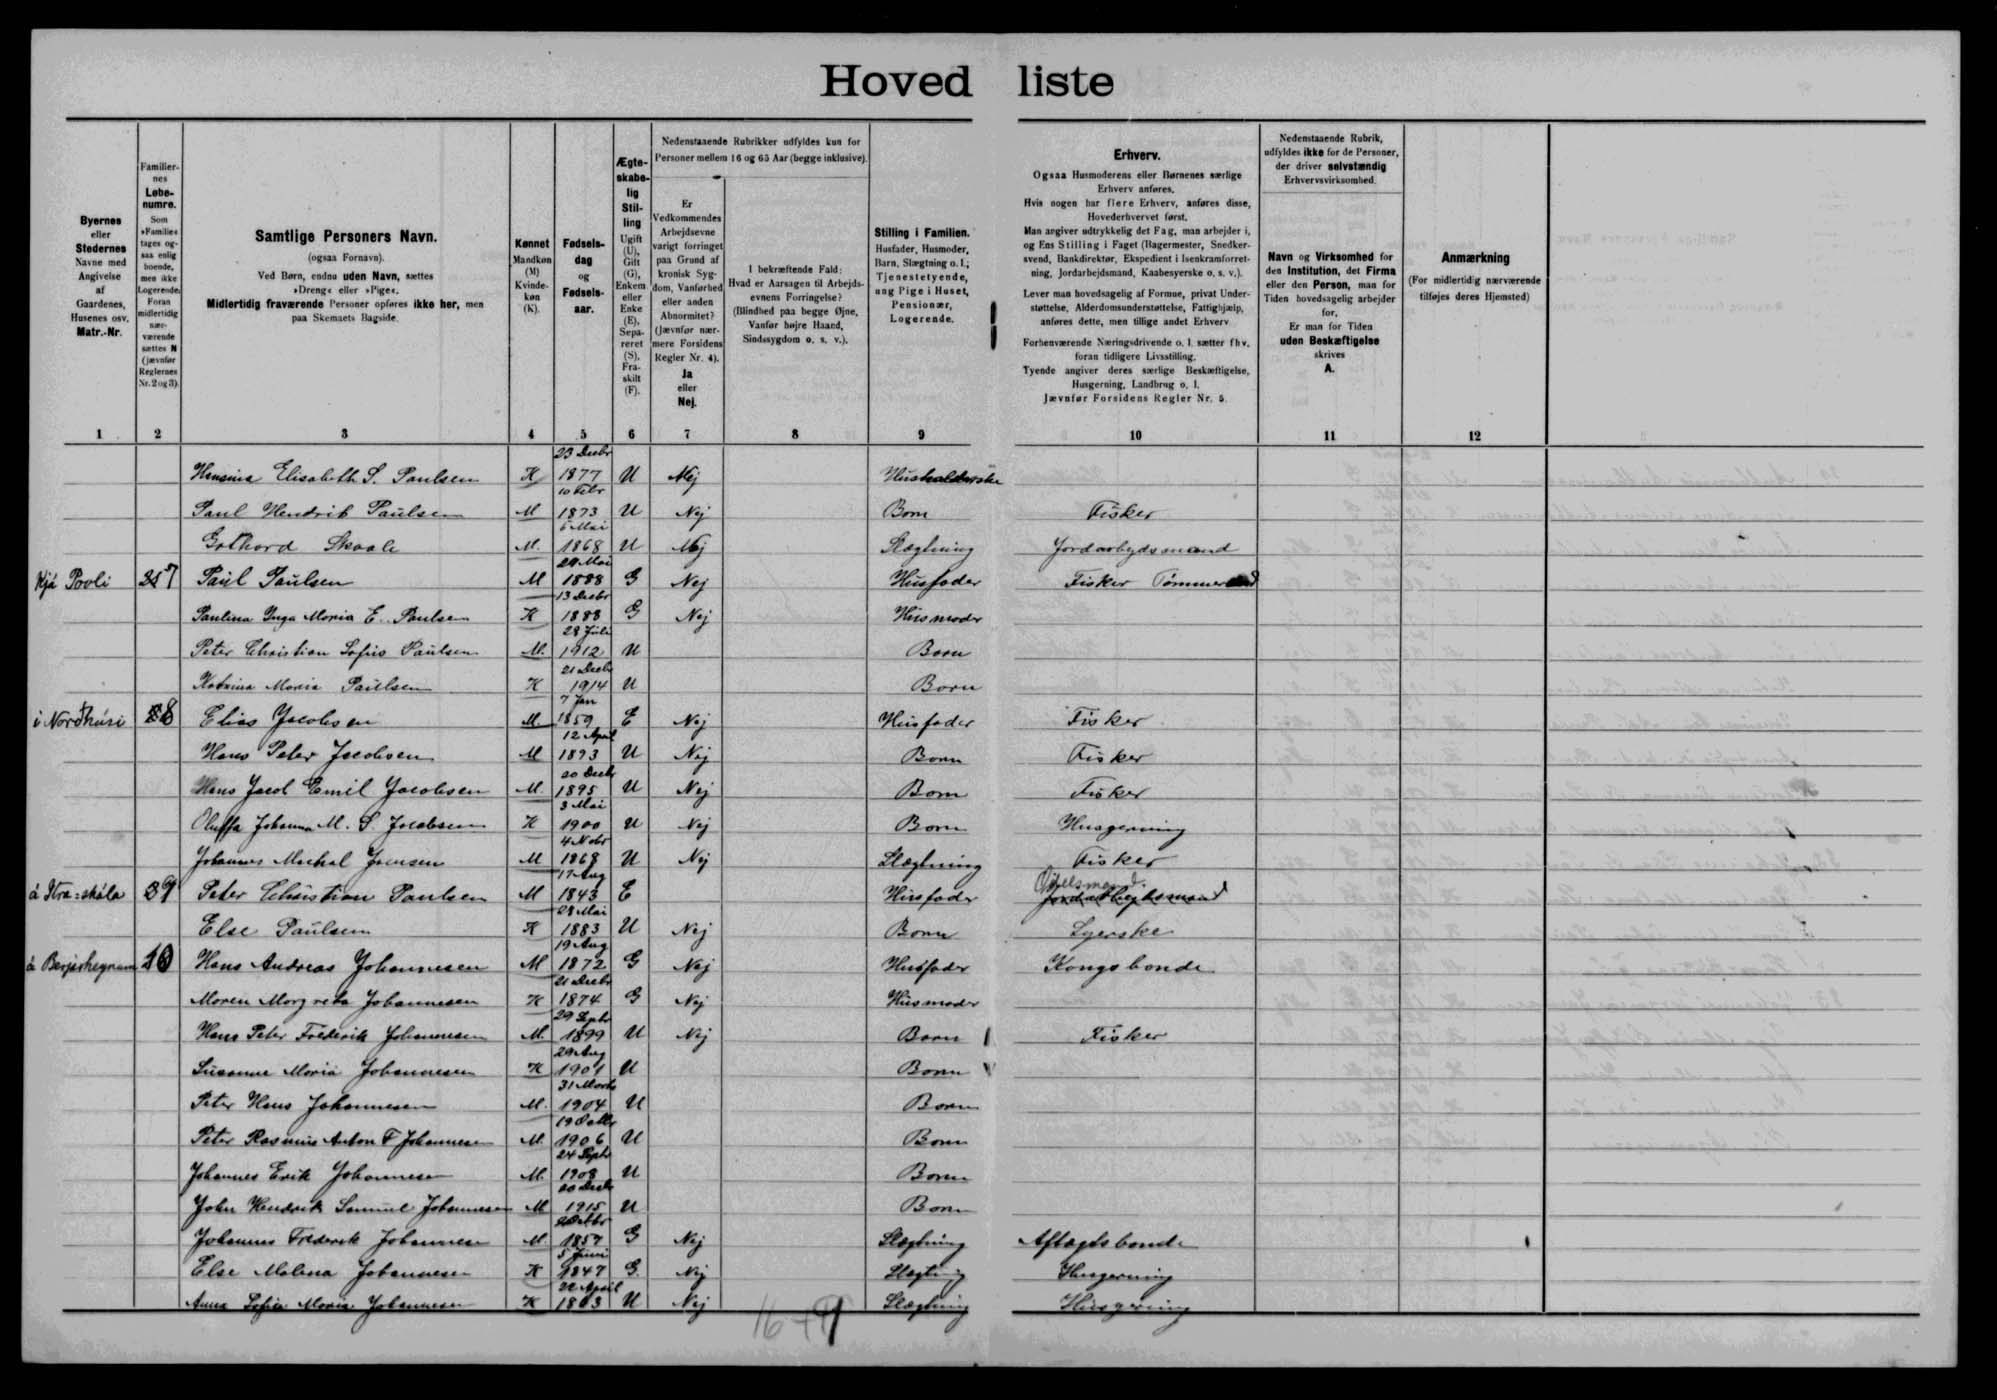 Hovedliste
Byernes eller Stedernes Navne med Angivelse af Gaardenes, Husenes osv. Matr.-Nr.
Familiernes Løbenumre. Som »Familie« tages ogsaa enlig boende, men ikke Logerende. Foran midlertidig nærværende sættes N (jævnfør Reglernes Nr. 2 og 3).
Samtlige Personers Navn. (ogsaa Fornavn). Ved Børn, endnu uden Navn, sættes »Dreng« eller »Pige«. Midlertidig fraværende Personer opføres ikke her, men paa Skemaets Bagside.
Kønnet Mandkøn (M) Kvindekøn (K).
Fødselsdag og Fødselsaar.
Ægteskabelig Stilling Ugift (U), Gift (G), Enkem. eller Enke (E), Separeret (S), Fraskilt (F).
Nedenstaaende Rubrikker udfyldes kun for Personer mellem 16 og 65 Aar (begge inklusive).
Er Vedkommendes Arbejdsevne varigt forringet paa Grund af kronisk Sygdom, Vanførhed eller anden Abnormitet? (Jævnfør nærmere Forsidens Regler Nr. 4). Ja eller Nej.
I bekræftende Fald: Hvad er Aarsagen til Arbejdsevnens Forringelse? (Blindhed paa begge Øjne, Vanfør højre Haand, Sindssygdom o. s. v.).
Stilling i Familien. Husfader, Husmoder, Barn, Slægtning o. l.; Tjenestetyende, ung Pige i Huset, Pensionær, Logerende.
Erhverv. Ogsaa Husmoderens eller Børnenes særlige Erhverv anføres. Hvis nogen har flere Erhverv, anføres disse, Hovederhvervet først. Man angiver udtrykkelig det Fag, man arbejder i, og Ens Stilling i Faget (Bagermester, Snedkersvend, Bankdirektør, Ekspedient i Isenkramforretning, Jordarbejdsmand, Kaabesyerske o. s. v.). Lever man hovedsagelig af Formue, privat Understøttelse, Alderdomsunderstøttelse, Fattighjælp, anføres dette, men tillige andet Erhverv. Forhenværende Næringsdrivende o. l. sætter fhv. foran tidligere Livsstilling. Tyende angiver deres særlige Beskæftigelse, Husgerning, Landbrug o. l. Jævnfør Forsidens Regler Nr. 5.
Nedenstaaende Rubrik, udfyldes ikke for de Personer, der driver selvstændig Erhvervsvirksomhed.
Navn og Virksomhed for den Institution, det Firma eller den Person, man for Tiden hovedsagelig arbejder for. Er man for Tiden uden Beskæftigelse skrives A.
Anmærkning (For midlertidig nærværende tilføjes deres Hjemsted)
1 2 3 4 5 6 7 8 9 10 11 12
Hansina Elisabeth S. Paulsen K 23 Decbr 1877 U Nej Husholderske
Paul Hendrik Paulsen M 10 Febr 1873 U Nej Barn Fisker
Gothard Skaale M. 6 Mai 1868 U Nej Slægtning Jordarbejdsmand
Hjá Povli 7 Paul Paulsen M 24 Mai 1888 G Nej Husfader Fisker
Paulina Inga Maria E. Paulsen K 13 Decbr 1888 G Nej Husmoder
Peter Christian Sofus Paulsen M. 28 Juli 1912 U Barn
Katrina Maria Paulsen K 21 Decbr 1914 U Barn
i Norðhúsi 8 Elias Jacobsen M. 7 Jan 1859 E Nej Husfader Fisker
Hans Peter Jacobsen M 12 April 1893 U Nej Barn Fisker
Hans Jacob Emil Jacobsen M. 20 Decbr 1895 U Nej Barn Fisker
Oluffa Johanna M. S. Jacobsen K 3 Mai 1900 U Nej Barn Husgerning
Johannes Joensen M 4 Nobr 1868 U Nej Slægtning Fisker
9 Peter Christian Paulsen M 17 Aug 1843 E Husfader Odelsmand Jordarbejdsmand
Else Paulsen K 28 Mai 1883 U Nej Barn Syerske
10 Hans Andreas Johannesen M 19 Aug 1872 G Nej Husfader Kongsbonde
Maren Margreta Johannesen K 21 Decbr 1874 G Nej Husmoder
Hans Peter Frederik Johannesen M. 29 Septr 1899 U Nej Barn Fisker
Susanne Maria Johannesen K 29 Aug 1901 U Barn
Peter Hans Johannesen M. 31 Marts 1904 U Barn
Peter Rasmus Anton F Johannesen M. 19 Octbr 1906 U Barn
Johannes Erik Johannesen M. 24 Septr 1908 U Barn
John Hendrik Samuel Johannesen M 20 Decbr 1915 U Barn
Johannes Frederik Johannesen M. Octbr 1857 G Nej Slægtning Aftægtsbonde
Else Malena Johannesen K 5 Juni 1847 G. Nej Slægtning Husgerning
Anna Sofia Maria Johannesen K 22 April U Nej Slægtning Husgerning